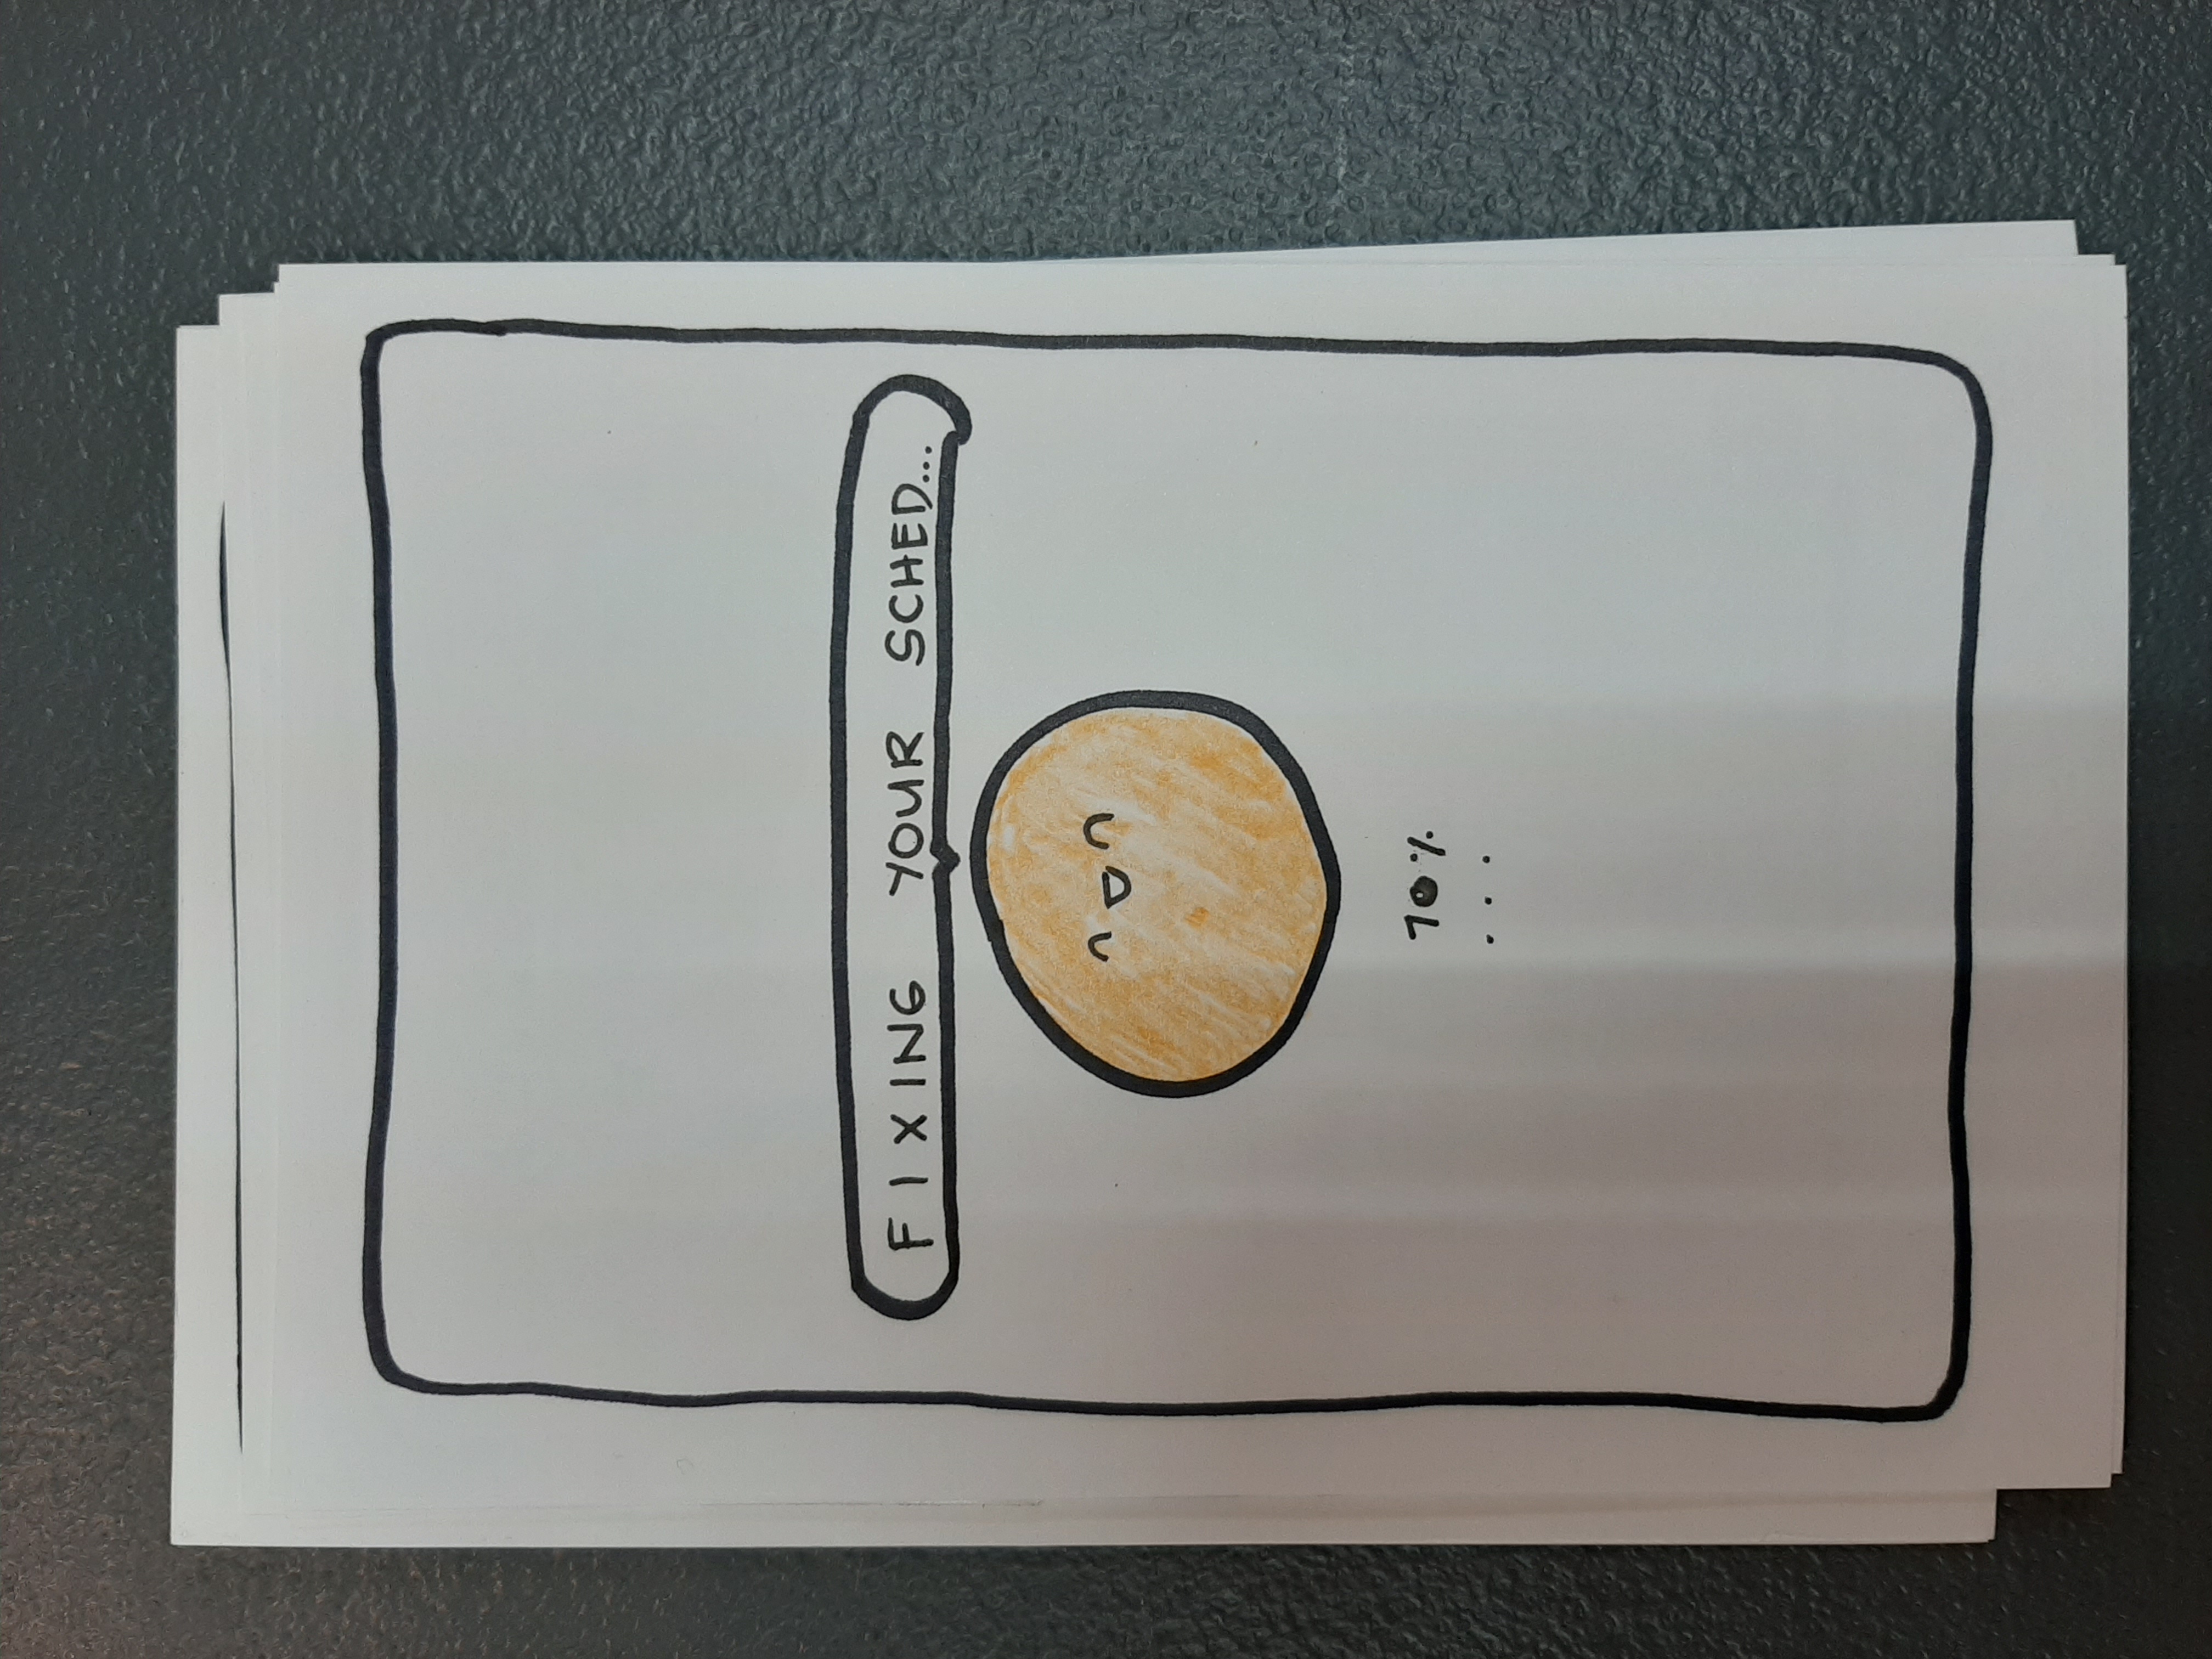 FIXING YOUR SCHED...
70%
...